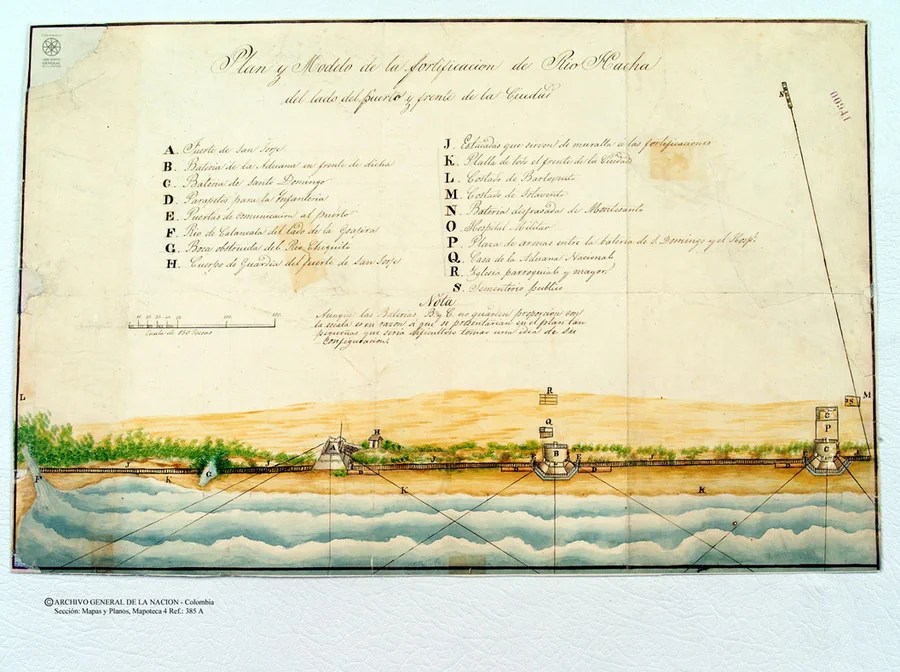 ARCHIVO
GENERAL
Plan y Modelo de la fortificacion de Rio Hacha
del lado del puerto y frente de la Ciudad
A. Fuerte de San Jorje
B. Bateria de la Aduana en frente de dicha
C. Bateria de Santo Domingo
D. Parapetos para la Infanteria
E. Puertas de comunicacion al puerto
F. Rio de Calancala del lado de la Goajira
G. Boca obstruida del Rio Chiquito
H. Cuerpo de Guardia del fuerte de San Jorje
J. Estacadas que sirven de muralla á las fortificaciones
K. Plalla de todo el frente de la Ciudad
L. Costado de Barlovento
M. Costado de Solavento
N. Bateria disfrasada de Montesanto
O. Hospital Militar
P. Plaza de armas entre la bateria de S. Domingo y el Hosp.
Q. Casa de la Aduana Nacional
R. Iglesia parroquial y mayor
S. Sementerio publico
Nota
Aunque las Baterias B. y C. no guarden proporcion con
la escala es en razon á que se presentarian en el plan tan
pequeñas que seria dificultoso tomar una idea de su
configuracion
Escala de 150
00941
N
L
R
M
S
Q
H
P
A
B
C
E
E
D
J
J
F
K
G
K
K
© ARCHIVO GENERAL DE LA NACION - Colombia
Sección: Mapas y Planos, Mapoteca 4 Ref.: 385 A